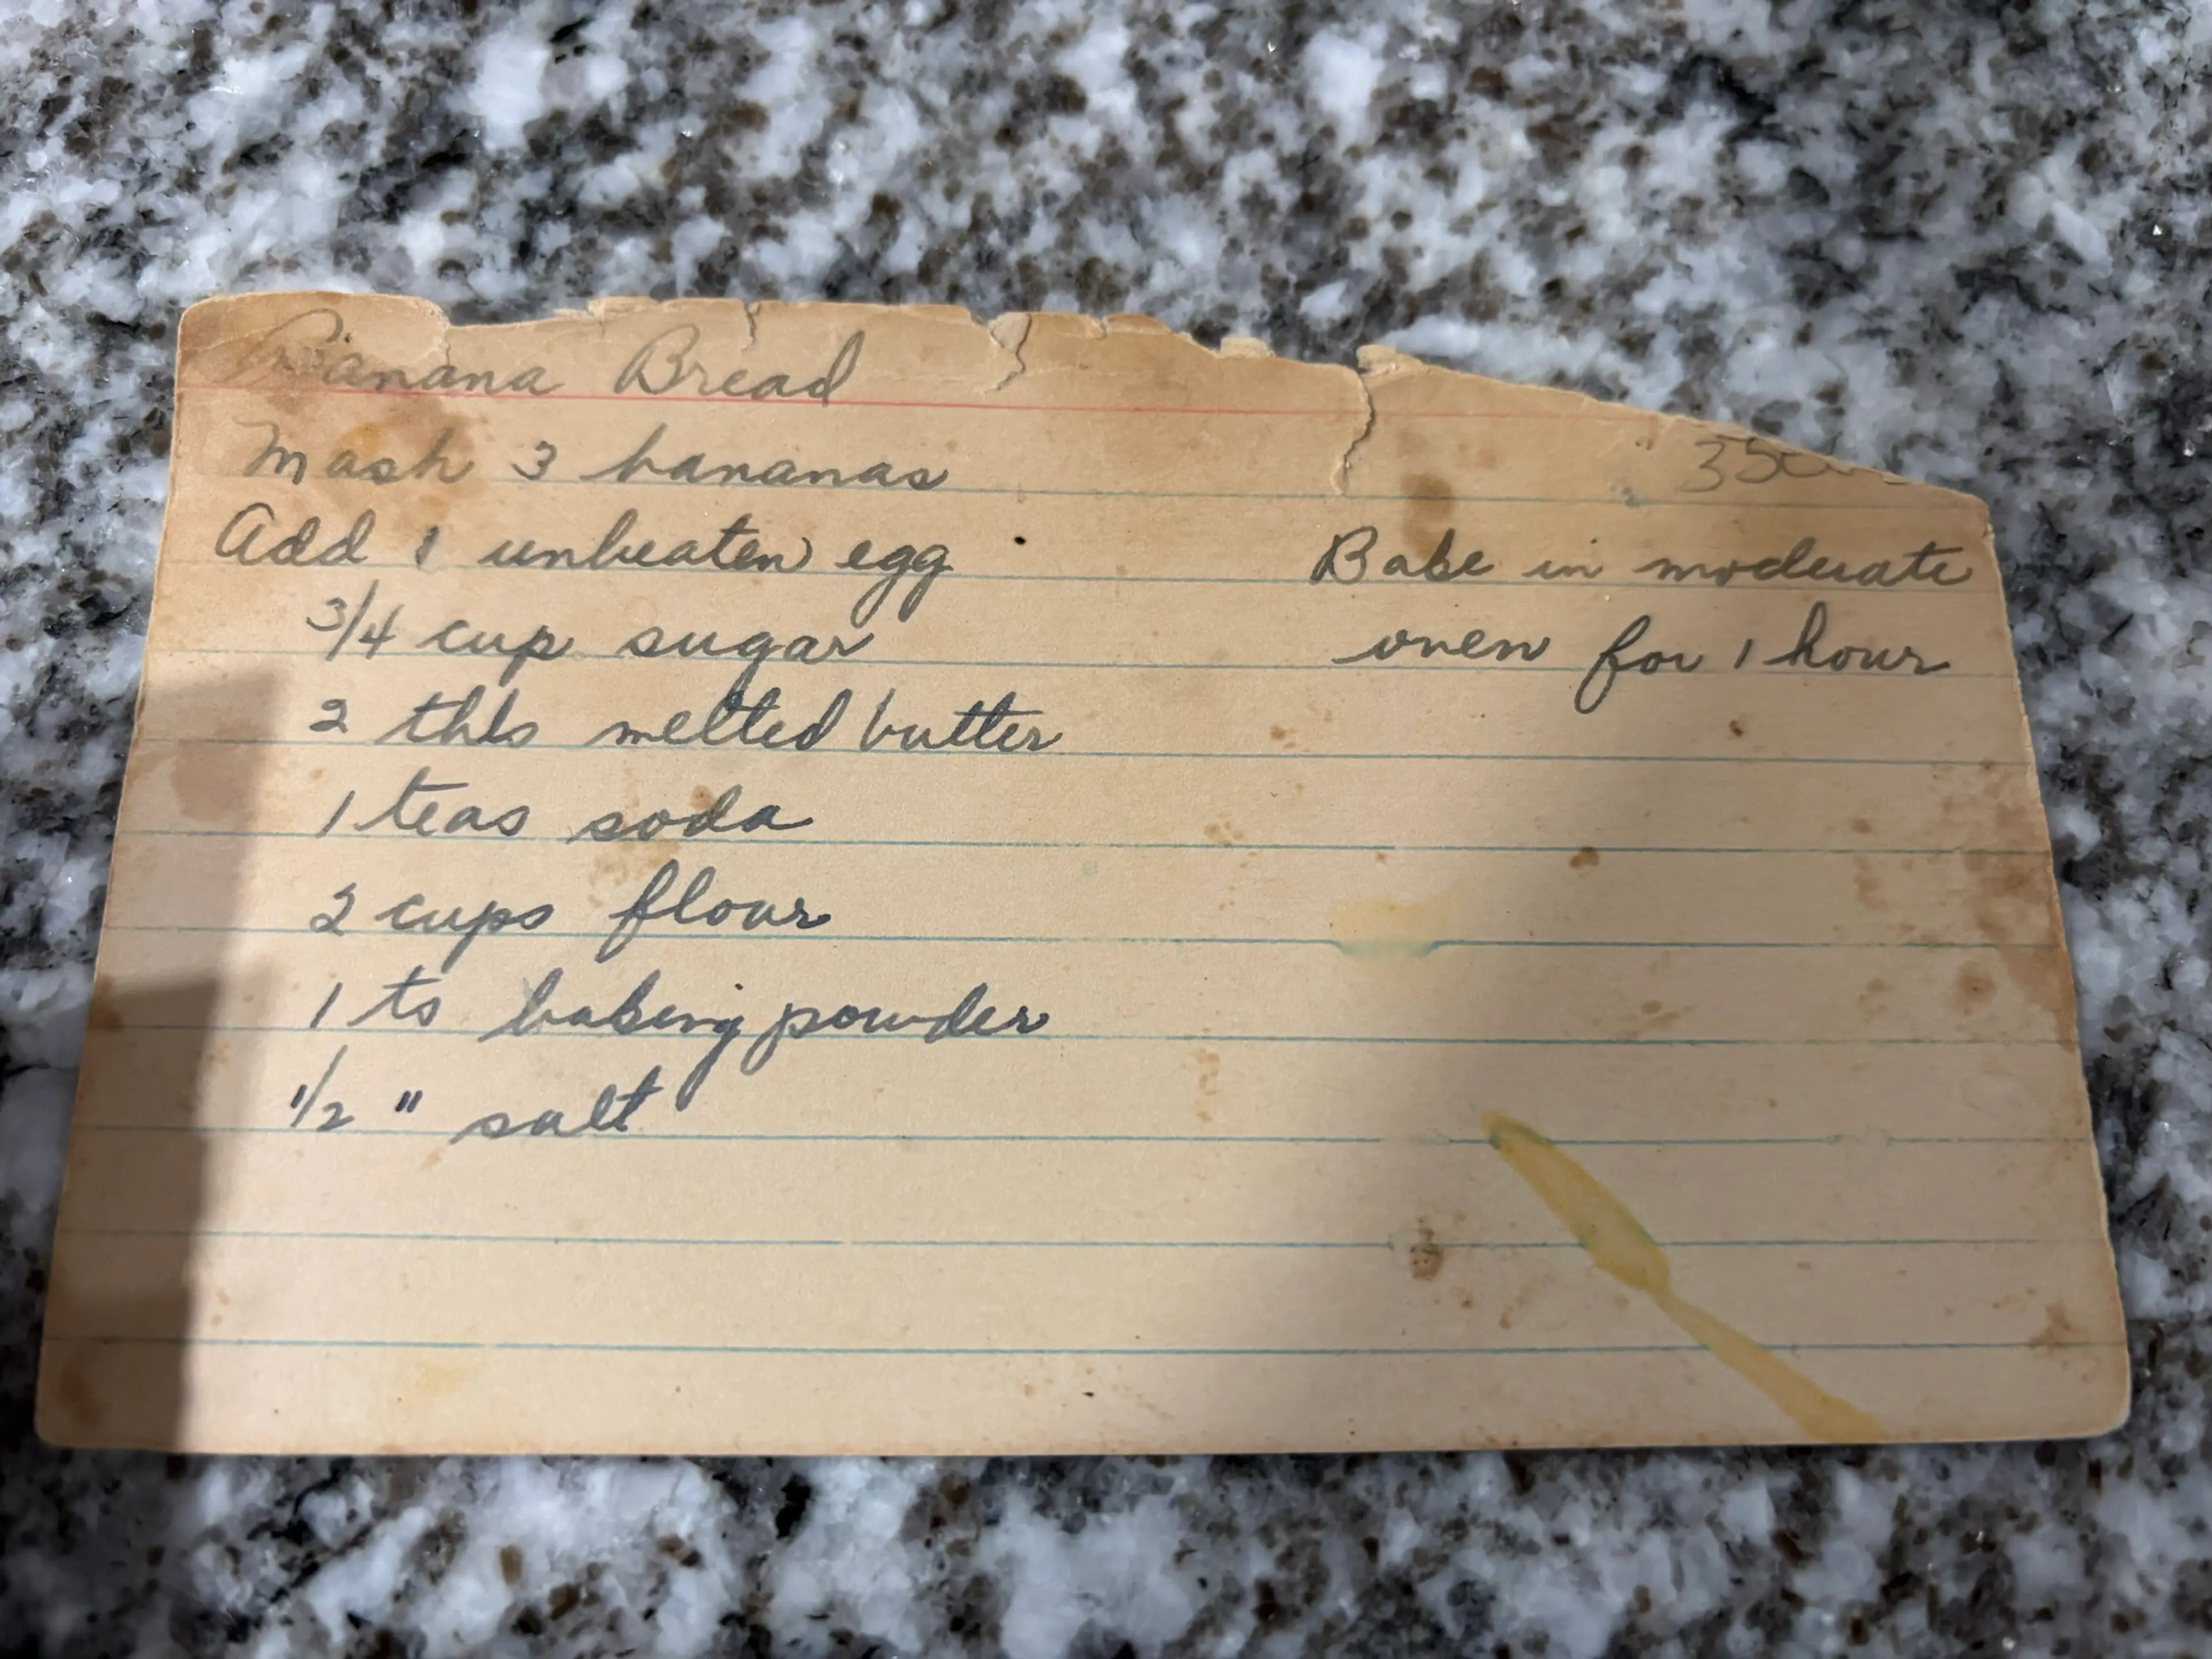 Banana Bread
Mash 3 bananas
Add 1 unbeaten egg
3/4 cup sugar
2 tbls melted butter
1 teas soda
2 cups flour
1 ts baking powder
1/2 " salt
350
Bake in moderate
oven for 1 hour